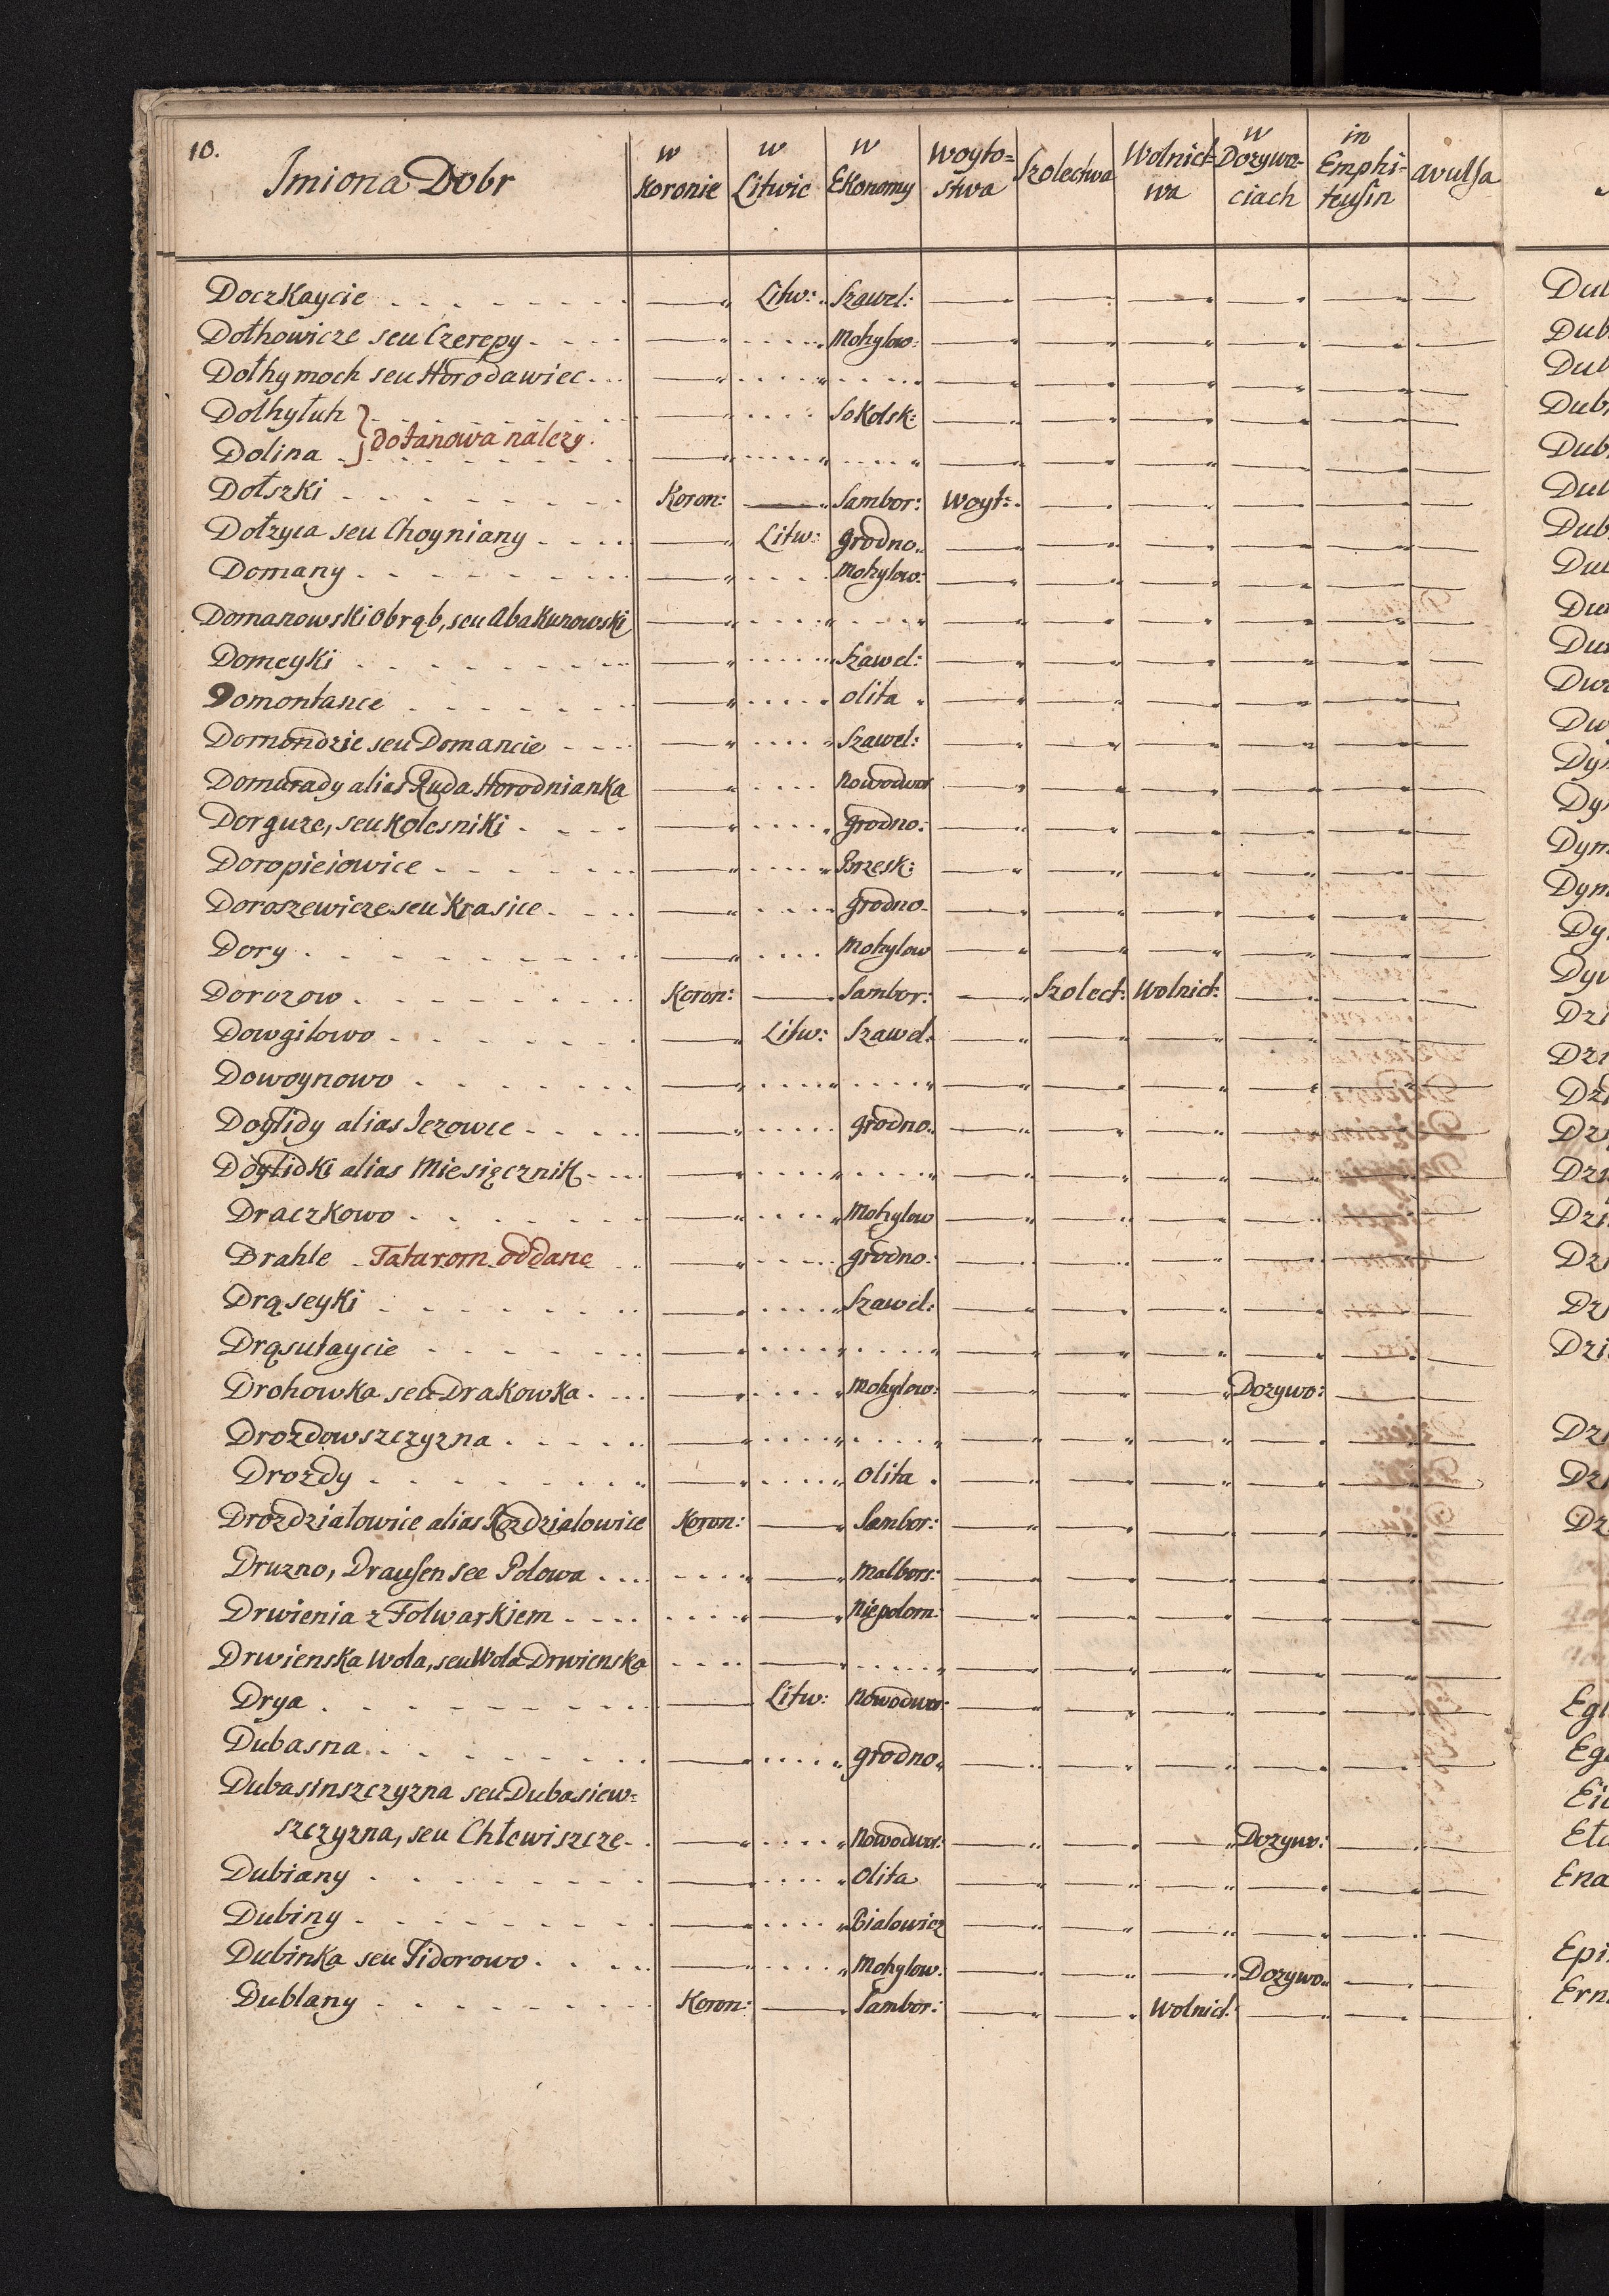 10.
Imiona Dobr | w Koronie | w Litwie | w Ekonomy | Woyto=stwa | Szolectwa | Wolnict=wa | w Dozywo=ciach | in Emphi=teusin | avulsa
Doczkaycie | Litw: | Szawel:
Dołhowicze seu Czerepy | Mohylow:
Dołhy moch seu Horodawiec
Dołhyłuh | Sokolsk:
} do Łanowa nalezy.
Dolina
Dołszki | Koron: | Sambor: | Woyt:
Dołzyca seu Choyniany | Litw: | grodno
Domany | Mohylow:
Domanowski Obrąb, seu Abakurowski
Domeyki | Szawel:
Domontance | olita
Domondzie seu Domancie | Szawel:
Domurady alias Ruda Horodnianka | Nowodwor
Dorguze, seu Kolesniki | grodno:
Doropieiowice | Brzesk:
Doroszewicze seu Krasice | grodno
Dory | Mohylow
Dorozow | Koron: | Sambor: | Szolect: | Wolnict:
Dowgilowo | Litw: | Szawel:
Dowoynowo
Doylidy alias Jezowce | grodno
Doylidki alias Miesięcznik
Draczkowo | Mohylow
Drahle Tatarom oddane | grodno:
Drąseyki | Szawel:
Drąsutaycie
Drohowka seu Drakowka | Mohylow: | Dozywo:
Drozdowszczyzna
Drozdy | Olita
Drozdziałowice alias Rozdzialowice | Koron: | Sambor:
Druzno, Drausen see Polowa | Malbors:
Drwienia z Folwarkiem | Niepolom:
Drwienska Wola, seu Wola Drwienska
Drya | Litw: | Nowodwor:
Dubasna | grodno
Dubasinszczyzna seu Dubasiew=
szczyzna, seu Chlewiszcze | Nowodwor: | Dozywo:
Dubiany | Olita
Dubiny | Bialowicz
Dubinka seu Sidorowo | Mohylow: | Dozywo
Dublany | Koron: | Sambor: | Wolnict: